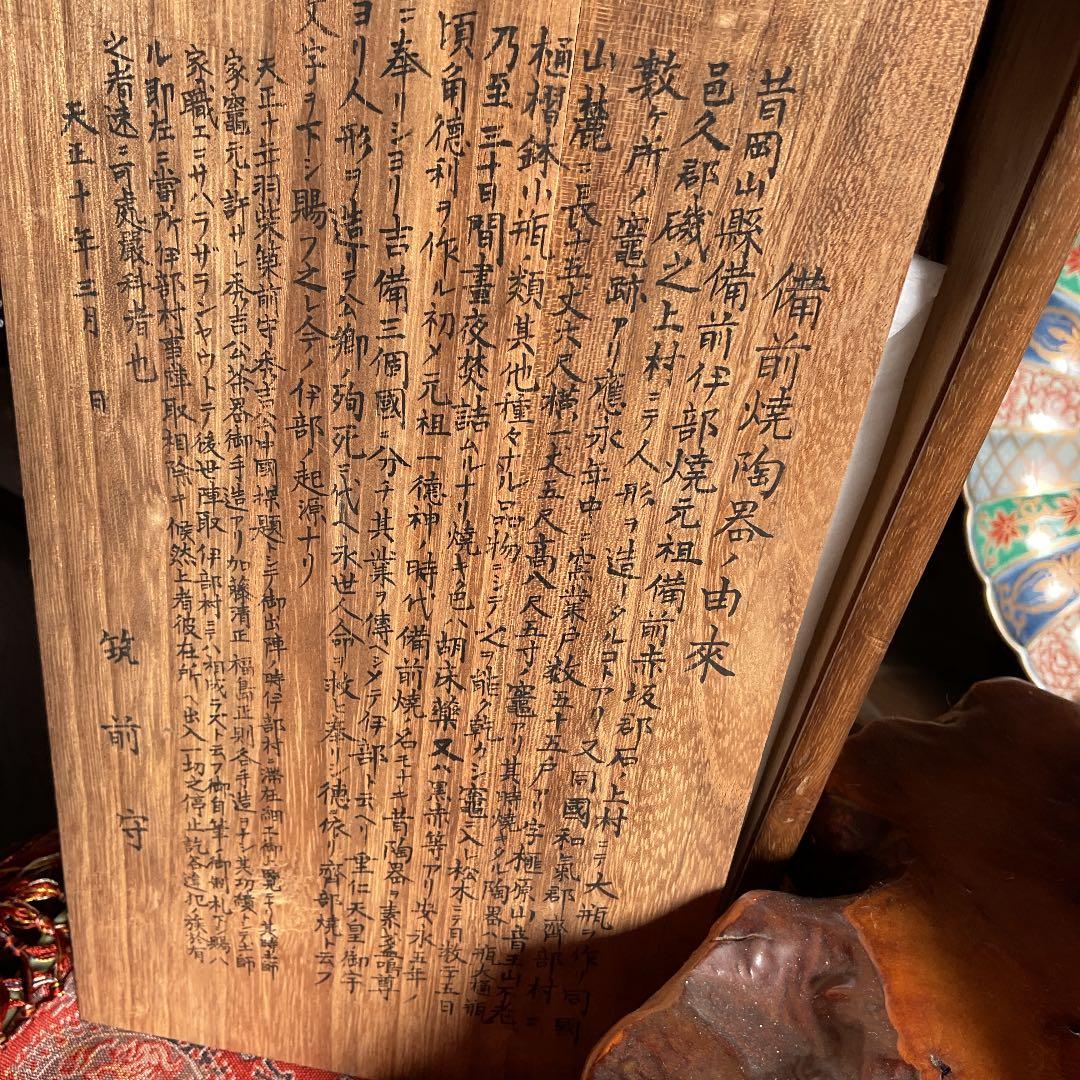 備前焼陶器ノ由來
昔岡山縣備前伊部焼元祖備前赤坂郡石ノ上村ニテ大瓶ヲ作リ同國
邑久郡磯之上村ニテ人形ヲ造リタルコトアリ又同國和氣郡齊部村ニ
数ヶ所ノ竈跡アリ應永年中ニ窯業戸数五十五戸アリ字榧原山音王山不老
山麓ニ長十五丈六尺横一丈五尺高八尺五寸ノ竈アリ其時焼キタル陶器ハ瓶大桶瓶
樋摺鉢小瓶ノ類其他種々ナル品物ニシテ之ヲ能ク乾カシ竈ニ入レ松木ニテ日数二十五日
乃至三十日間晝夜焚詰ムルナリ焼キ色ハ胡床藥又ハ黒赤等アリ安永五年ノ
頃角德利ヲ作ル初メ元祖一德神ノ時代備前焼ノ名モナキ昔陶器ヲ素盞嗚尊
ニ奉リシヨリ吉備三個國ニ分チ其業ヲ傳ヘシメテ伊部ト云ヘリ垂仁天皇御宇
ヨリ人形ヲ造リテ公郷ノ殉死ニ代ヘ永世人命ヲ救ヒ奉リシ徳依リ齊部焼ト云フ
文字ヲ下シ賜フ之レ今ノ伊部ノ起源ナリ
天正十年羽柴築前守秀吉公中國操題トシテ御出陣ノ時伊部村ニ滞在細工御一覧ナリ其時土師
家竈元ト許サレ秀吉公茶器御手造アリ加藤清正福島正則各手造日ナシ其功績トシテ土師
家職工ニサハラザランヤウトテ後世陣取伊部村ニハ相成ラズト云フ御自筆御制札下賜ハ
ル即在ニ當所伊部村事陣取相除キ候然上者彼在所ヘ出入一切之停止訖若違犯族於有
之者速ニ可處嚴科者也
天正十年三月 日
筑前守